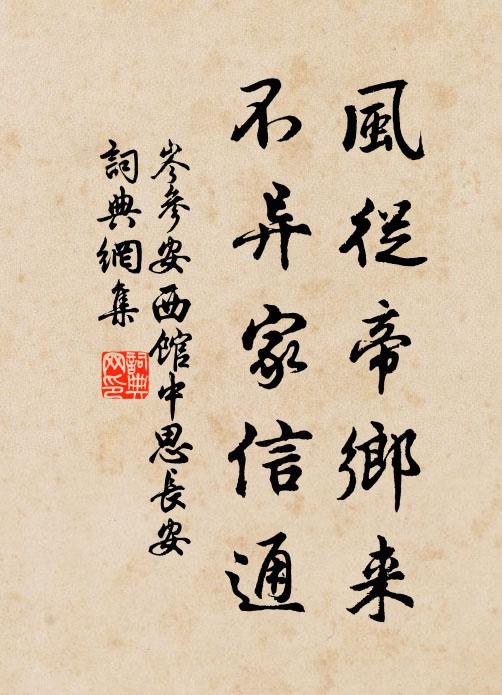 風從帝鄉来
不异家信通
岑參安西館中思長安
詞典網集
詞典網印